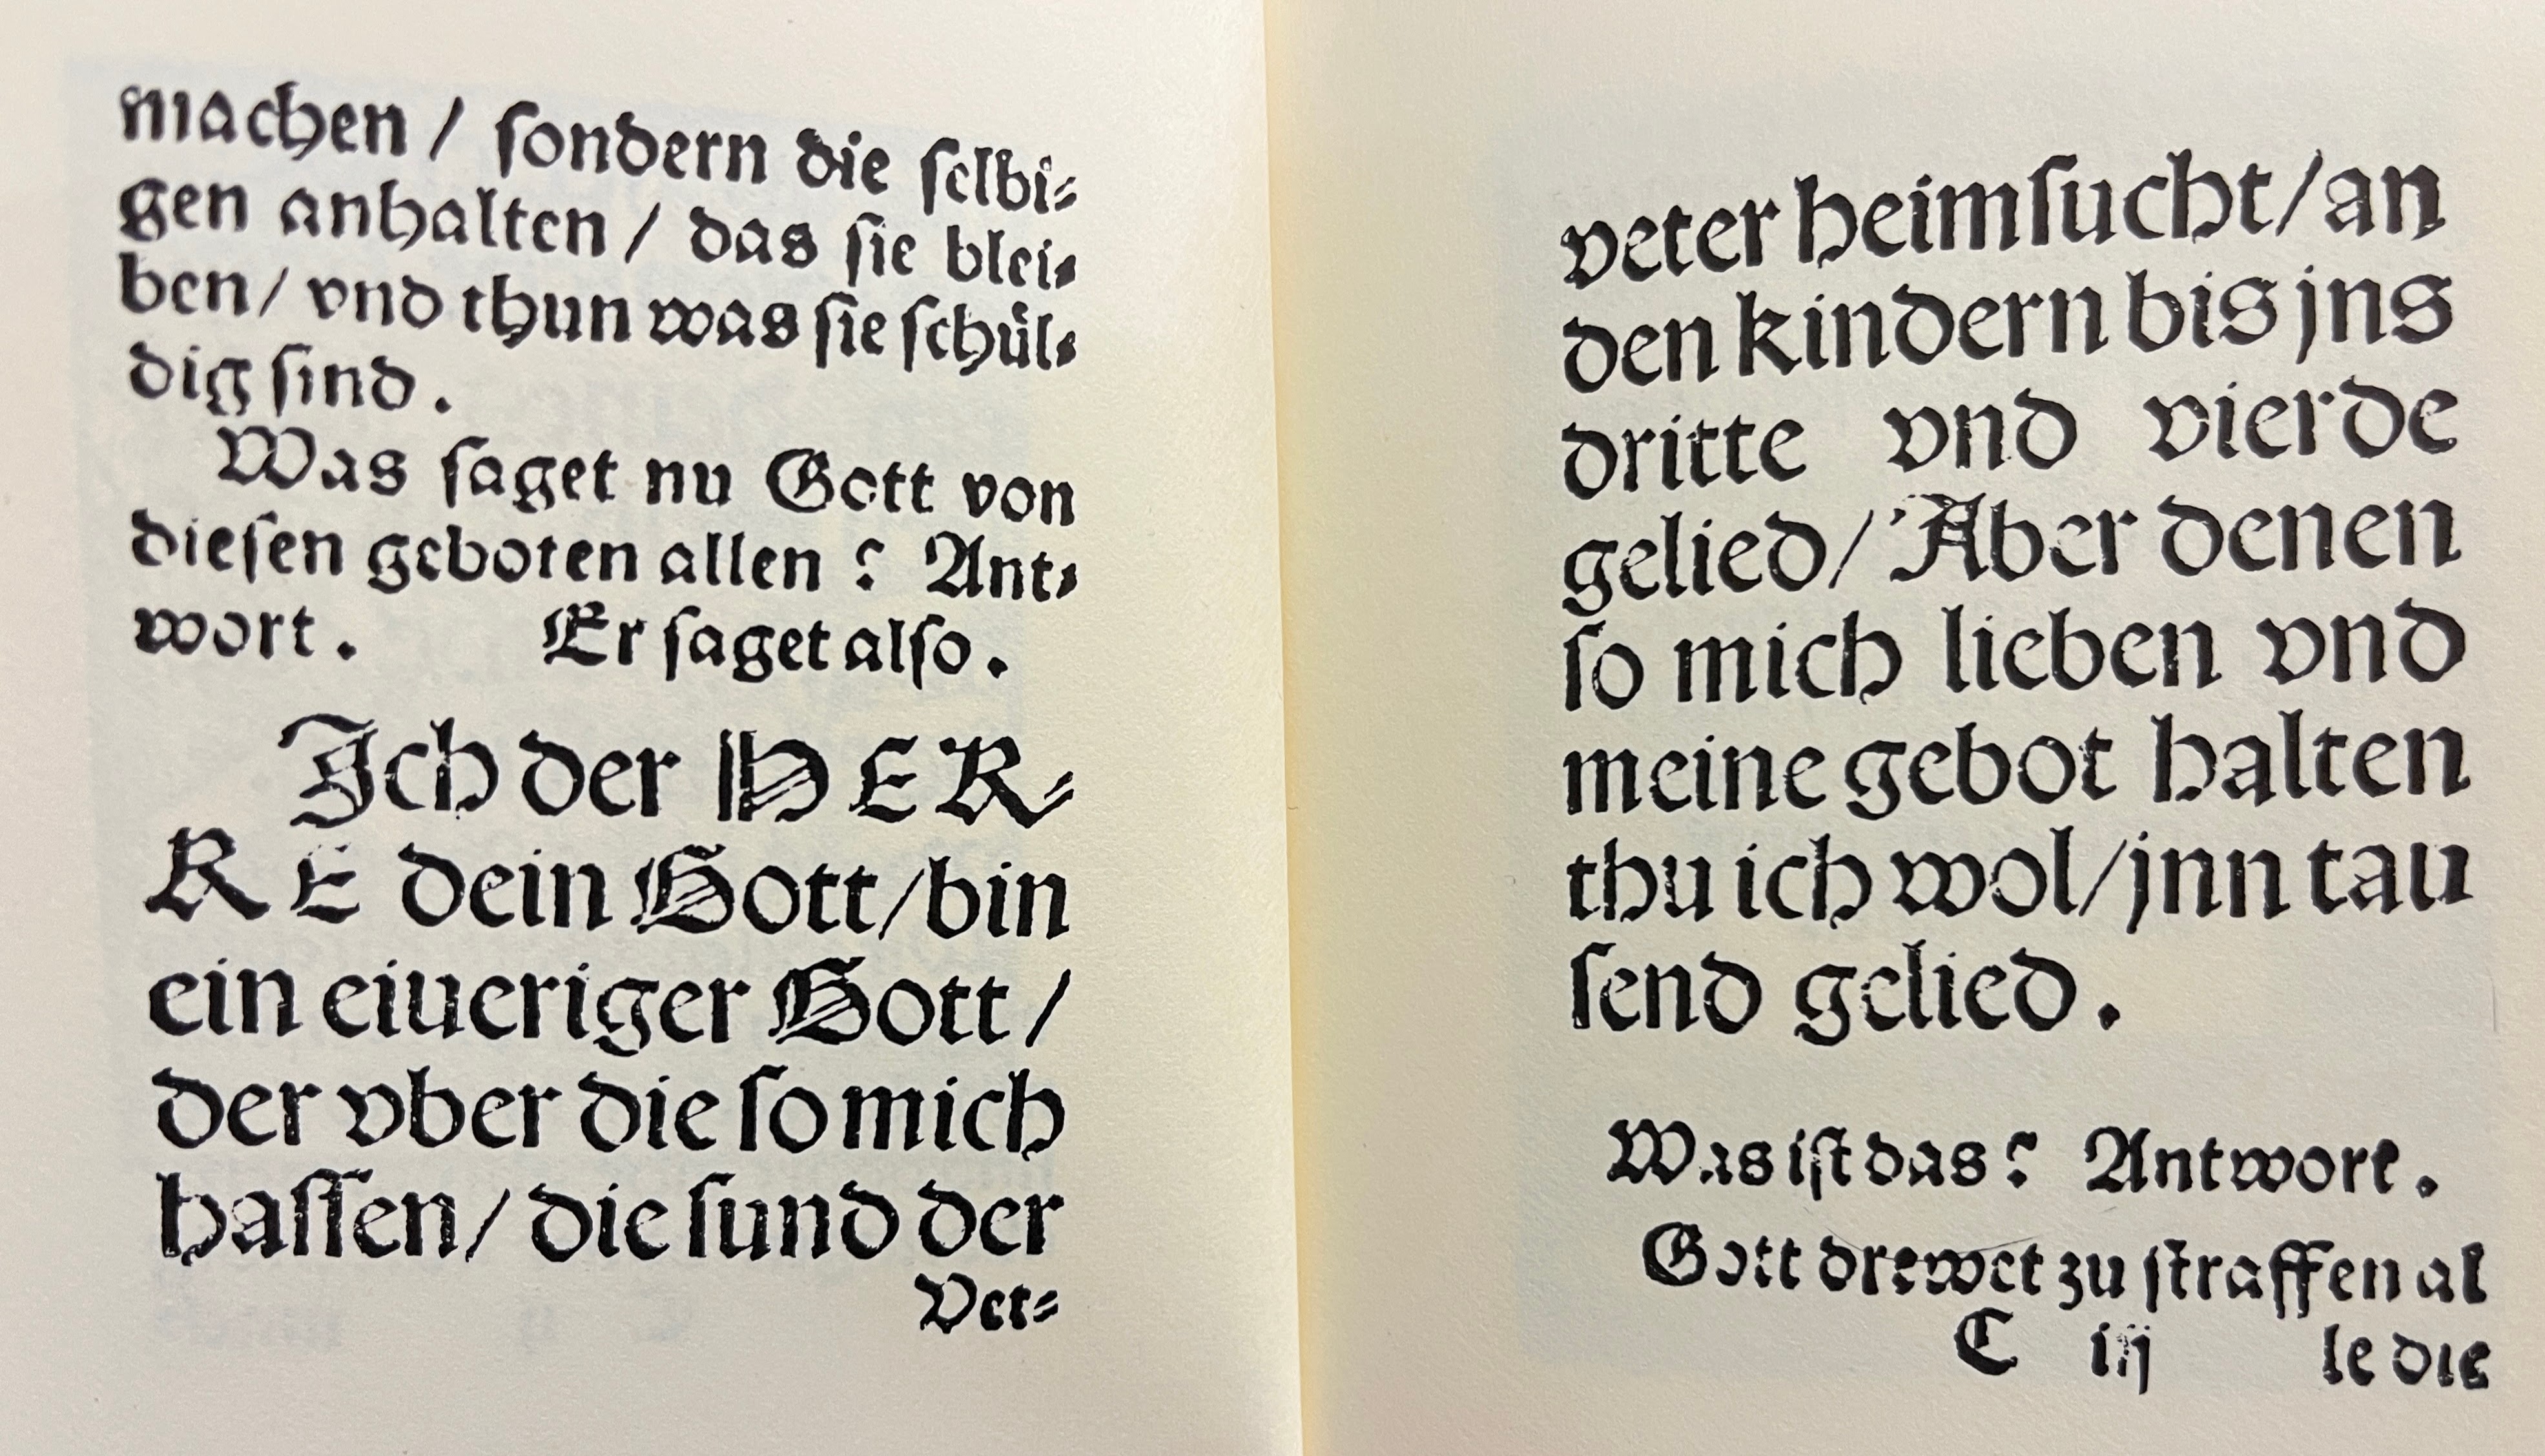 machen / ſondern die ſelbi⸗
gen anhalten / das ſie blei⸗
ben / vnd thun was ſie ſchül⸗
dig ſind .
Was ſaget nu Gott von
dieſen geboten allen ? Ant⸗
wort . Er ſaget alſo .
Ich der HER⸗
RE dein Gott / bin
ein eiueriger Gott /
der vber die ſo mich
haſſen / die ſund der
Vet⸗
veter heimſucht / an
den kindern bis jns
dritte vnd vierde
gelied / Aber denen
ſo mich lieben vnd
meine gebot halten
thu ich wol / jnn tau
ſend gelied .
Was iſt das ? Antwort .
Gott drewet zu ſtraffen al
C iij le die